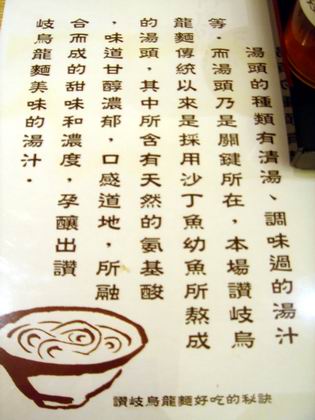 湯頭的種類有清湯、調味過的湯汁
等。而湯頭乃是關鍵所在，本場讚岐烏
龍麵傳統以來是採用沙丁魚幼魚所熬成
的湯頭，其中所含有天然的氨基酸
，味道甘醇濃郁，口感道地，所融
合而成的甜味和濃度，孕釀出讚
岐烏龍麵美味的湯汁。
讚岐烏龍麵好吃的秘訣